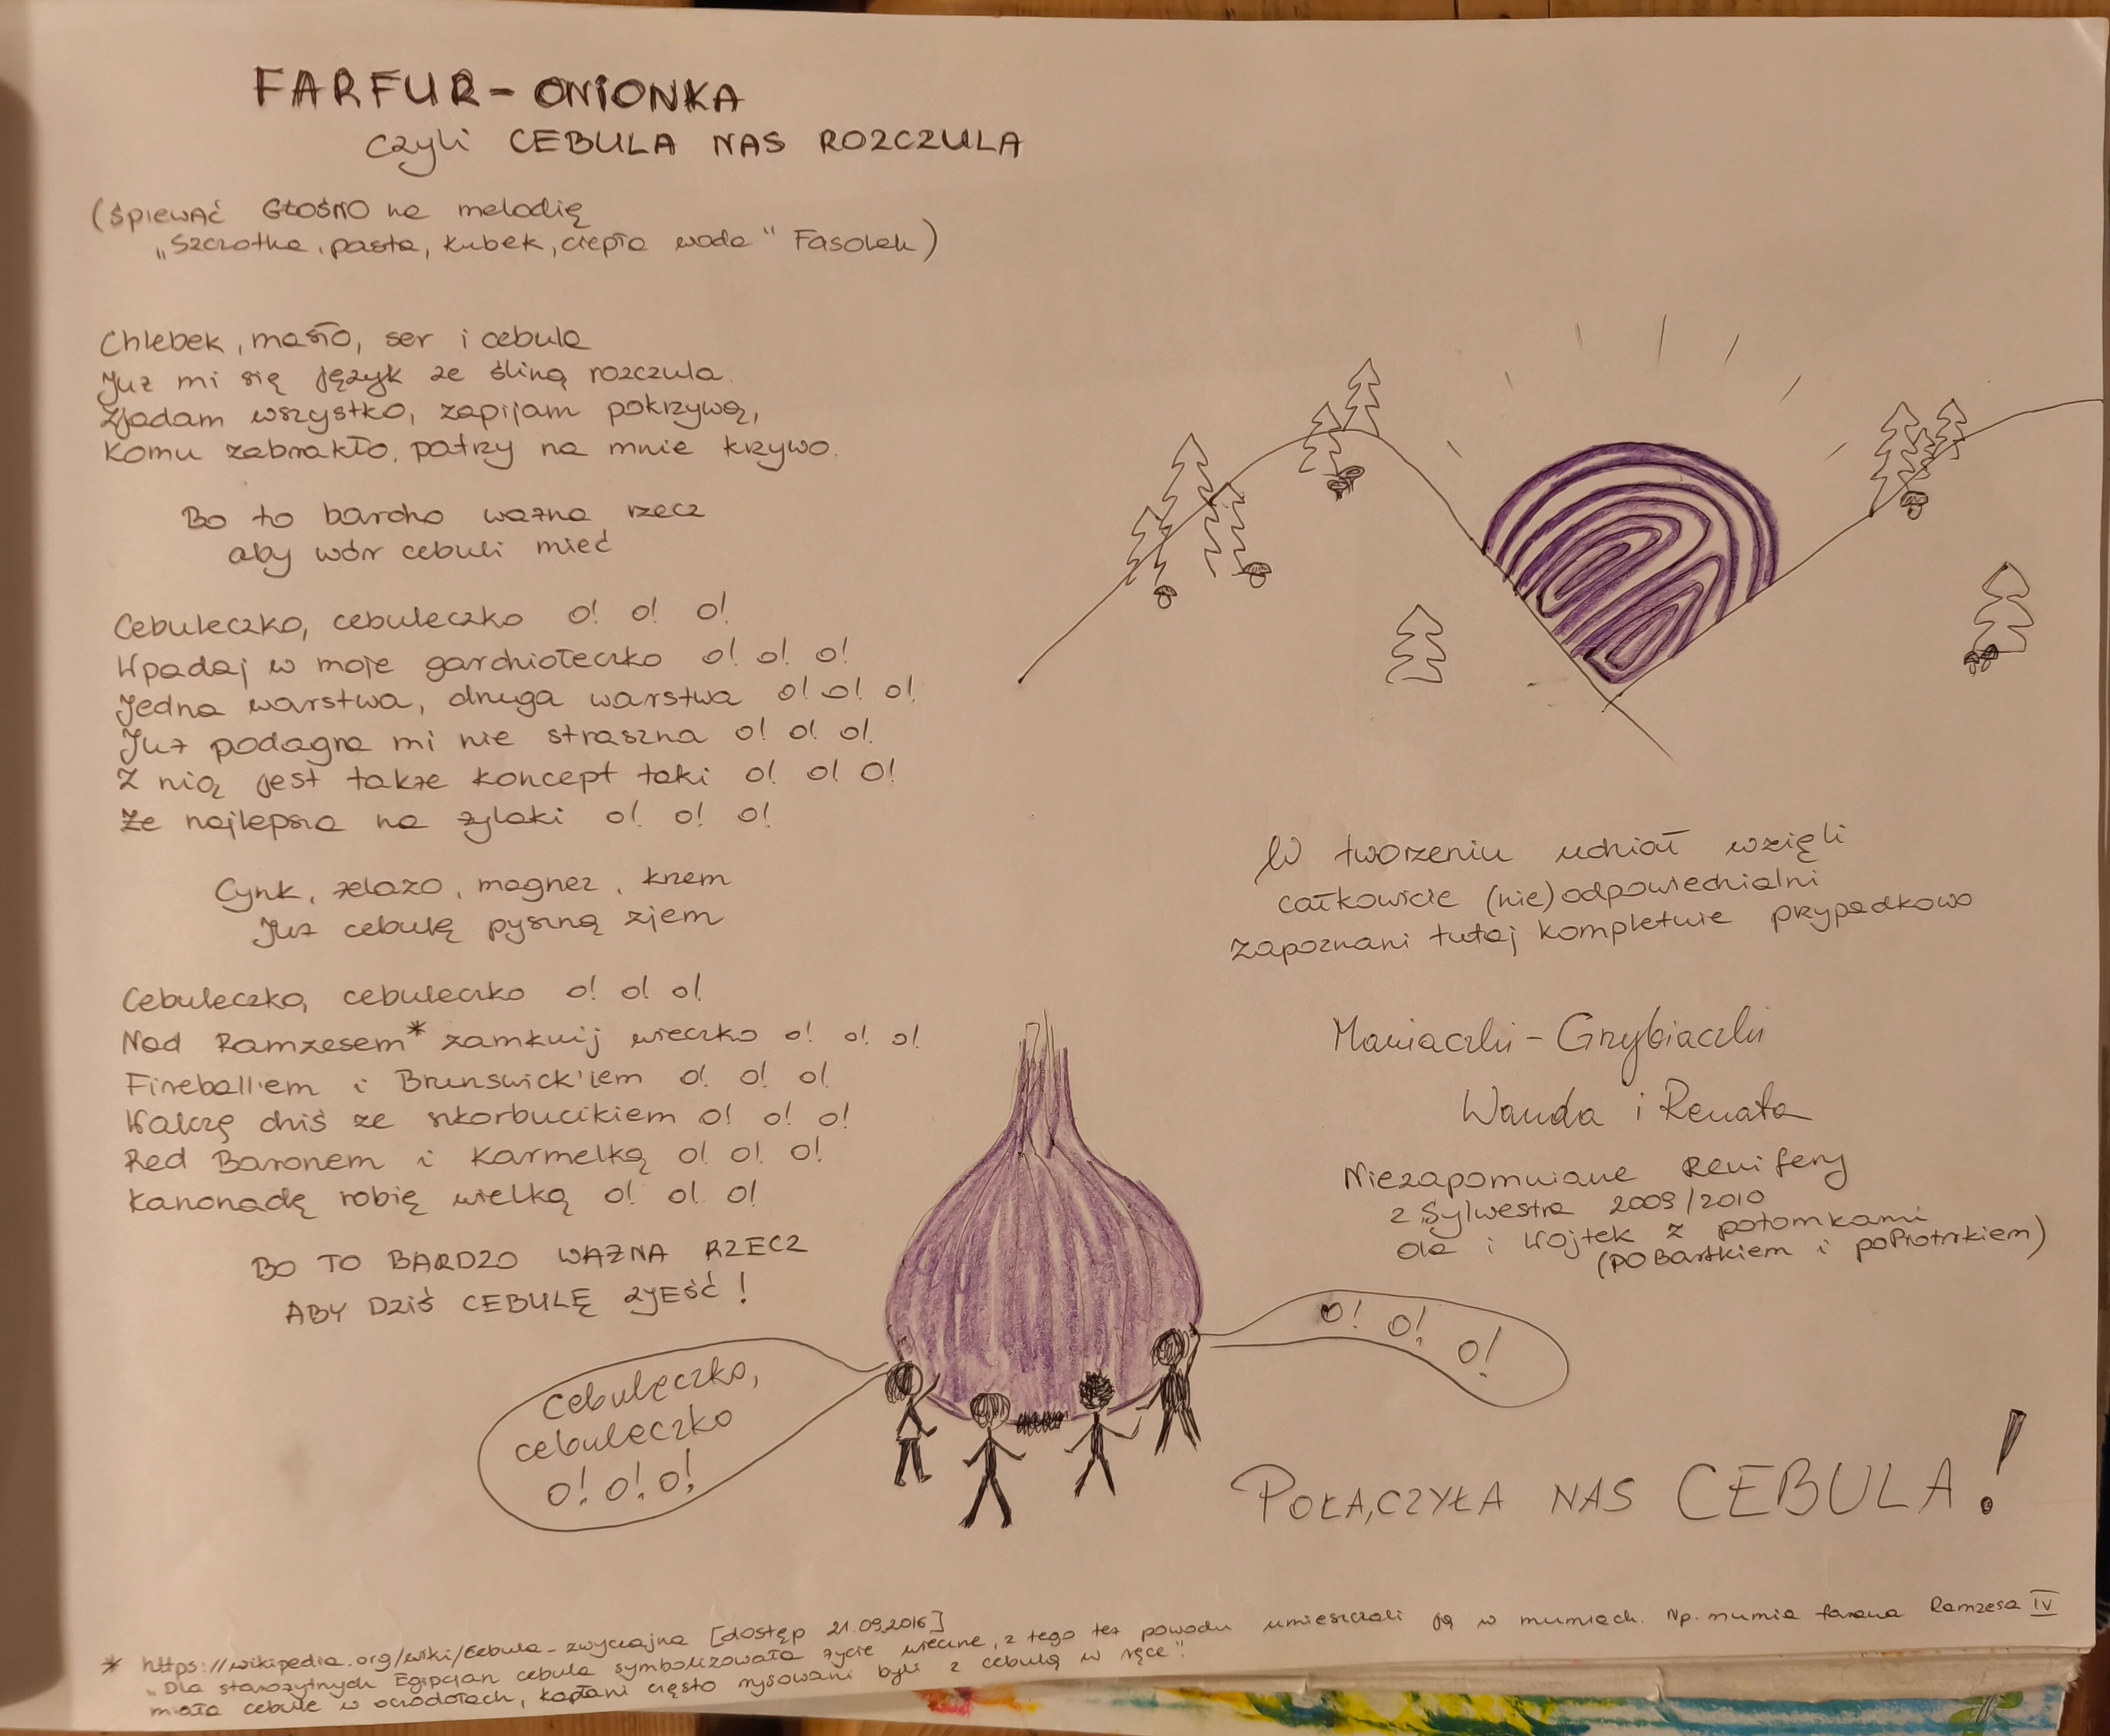 FARFUR - ONIONKA
czyli CEBULA NAS ROZCZULA
(ŚPIEWAĆ GŁOŚNO na melodię
„Szczotka, pasta, kubek, ciepła woda" Fasolek)
Chlebek, masło, ser i cebula
Już mi się język ze śliną rozczula.
Zjadam wszystko, zapijam pokrzywą,
Komu zabrakło, patrzy na mnie krzywo.
Bo to bardzo ważna rzecz
aby wór cebuli mieć
Cebuleczko, cebuleczko o! o! o!
Wpadaj w moje gardziołeczko o! o! o!
Jedna warstwa, druga warstwa o! o! o!
Już podagra mi nie straszna o! o! o!
Z nią jest także koncept taki o! o! o!
Że najlepsza na żylaki o! o! o!
Cynk, żelazo, magnez, krzem
Już cebulę pyszną zjem
Cebuleczko, cebuleczko o! o! o!
Nad Ramzesem* zamknij wieczko o! o! o!
Fireball'em i Brunswick'iem o! o! o!
Walczę dziś ze szkorbucikiem o! o! o!
Red Baronem i Karmelką o! o! o!
Kanonadę robię wielką o! o! o!
BO TO BARDZO WAŻNA RZECZ
ABY DZIŚ CEBULĘ ZJEŚĆ!
Cebuleczko,
cebuleczko
o! o! o!
o! o! o!
W tworzeniu udział wzięli
całkowicie (nie)odpowiedzialni
zapoznani tutaj kompletnie przypadkowo
Maniaczki - Grzybiaczki
Wanda i Renata
Niezapomniane Renifery
z Sylwestra 2009/2010
Ola i Wojtek z potomkami
(po Bartkiem i po Piotrkiem)
POŁĄCZYŁA NAS CEBULA!
* https://wikipedia.org/wiki/Cebula_zwyczajna [dostęp 21.09.2016]
„Dla starożytnych Egipcjan cebula symbolizowała życie wieczne, z tego też powodu umieszczali ją w mumiach. Np. mumia faraona Ramzesa IV
miała cebule w oczodołach, kapłani często rysowani byli z cebulą w ręce".